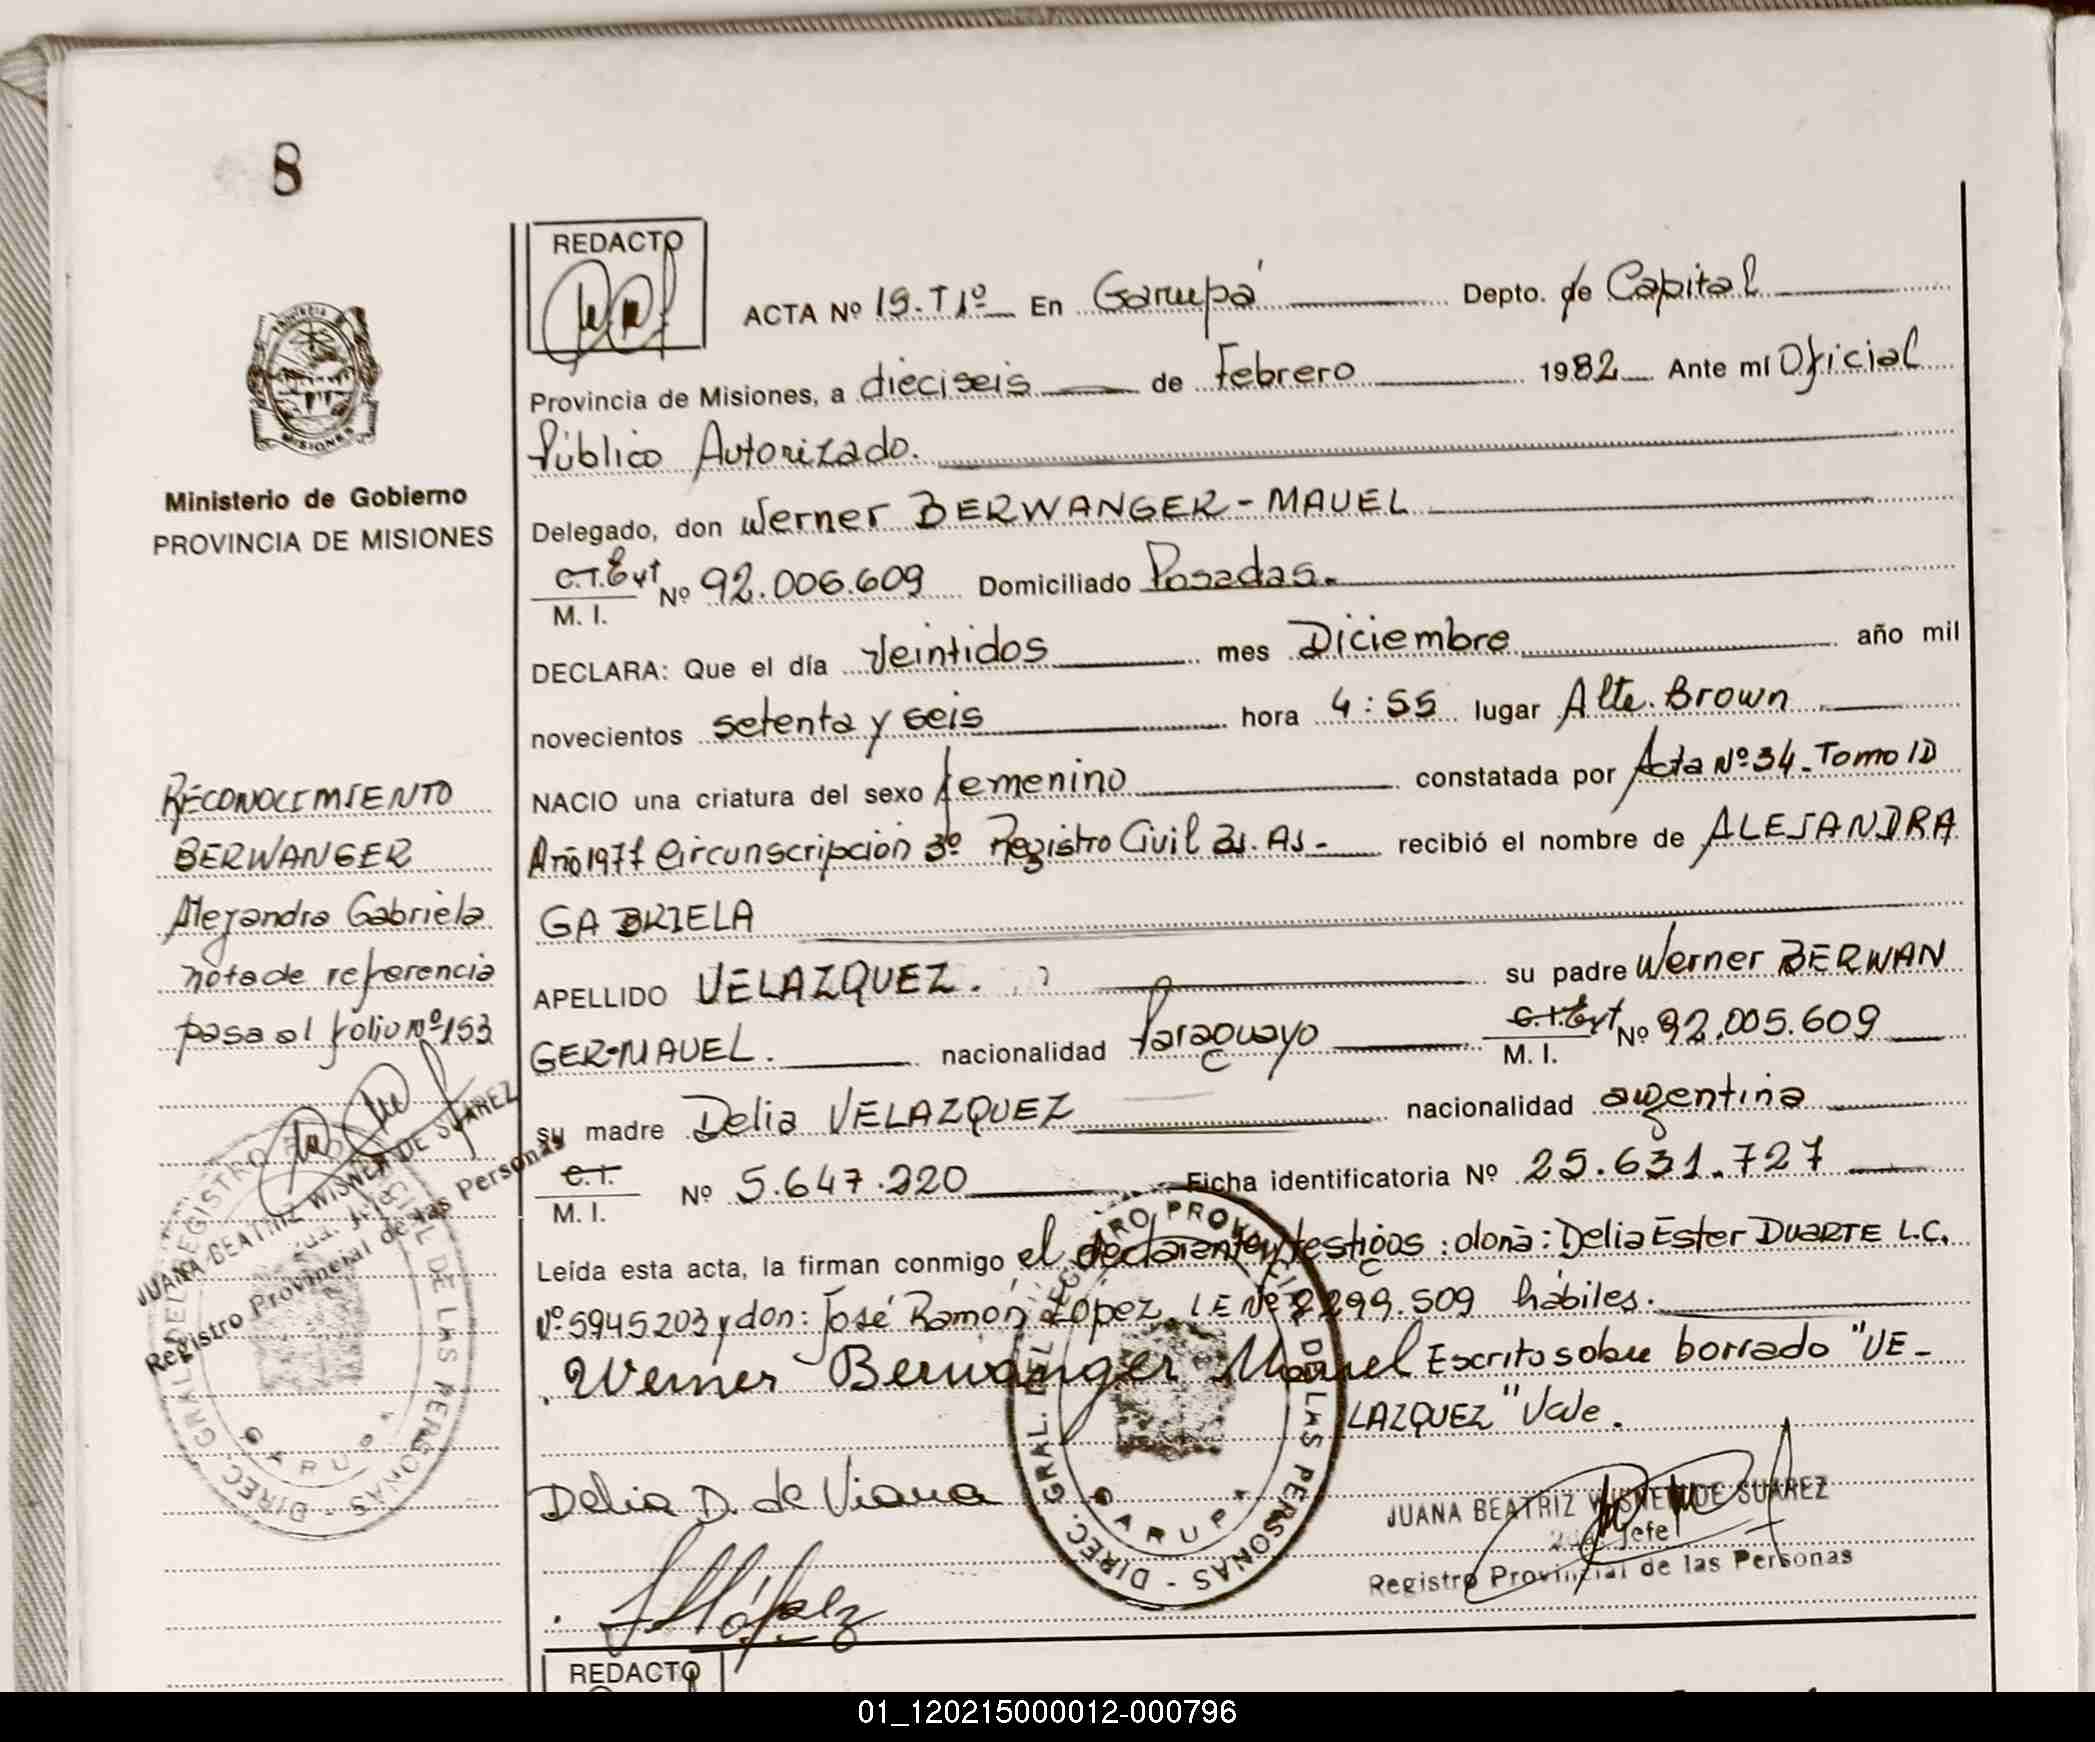 8
REDACTO
ACTA Nº 19.T1º En Garupá Depto. de Capital
Provincia de Misiones, a dieciseis de Febrero 1982 Ante mi Oficial
Público Autorizado.
PROVINCIA
MISIONES
Ministerio de Gobierno
PROVINCIA DE MISIONES
Delegado, don Werner BERWANGER-MAUEL
C.T. Ext
M. I. Nº 92.006.609 Domiciliado Posadas.
DECLARA: Que el día Veintidos mes Diciembre año mil
novecientos setenta y seis hora 4:55 lugar Alte. Brown
NACIO una criatura del sexo femenino constatada por Acta Nº34-Tomo 1D
Año 1977 Circunscripción 3º Registro Civil Bs. As- recibió el nombre de ALEJANDRA
GABRIELA
APELLIDO VELAZQUEZ. su padre Werner BERWAN
GER-MAUEL. nacionalidad Paraguayo C.I. Ext
M. I. Nº 92.005.609
su madre Delia VELAZQUEZ nacionalidad argentina
C.I.
M. I. Nº 5.647.220 Ficha identificatoria Nº 25.631.727
Leída esta acta, la firman conmigo el declarante y testigos: doña: Delia Ester DUARTE L.C.
Nº5945203 y don: José Ramón López, LE Nº 8299.509 hábiles.
Werner Berwanger Mauel Escrito sobre borrado "VE-
LAZQUEZ" Vale.
Delia D. de Viana
JLópez
RECONOCIMIENTO
BERWANGER
Alejandra Gabriela
nota de referencia
pasa al folio Nº153
JUANA BEATRIZ WISNER DE SUAREZ
Registro Provincial de las Personas
DIREC. GRAL. DEL REGISTRO CIVIL DE LAS PERSONAS
GARUPA
DIREC. GRAL. DEL REGISTRO PROVINCIAL DE LAS PERSONAS -
GARUPA
JUANA BEATRIZ WISNER DE SUAREZ
2da. Jefe
Registro Provincial de las Personas
REDACTO
01_120215000012-000796